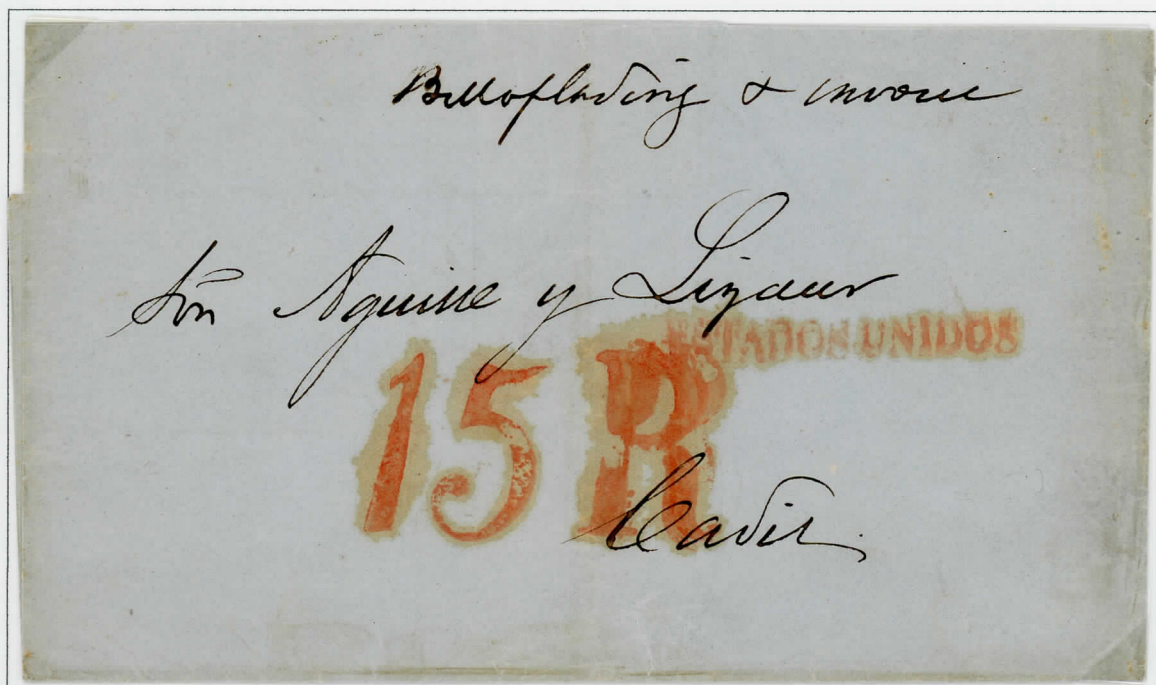 Bill of lading & invoice
Srñ Aguirre y Lizaur
ESTADOS UNIDOS
15 R
Cadiz.